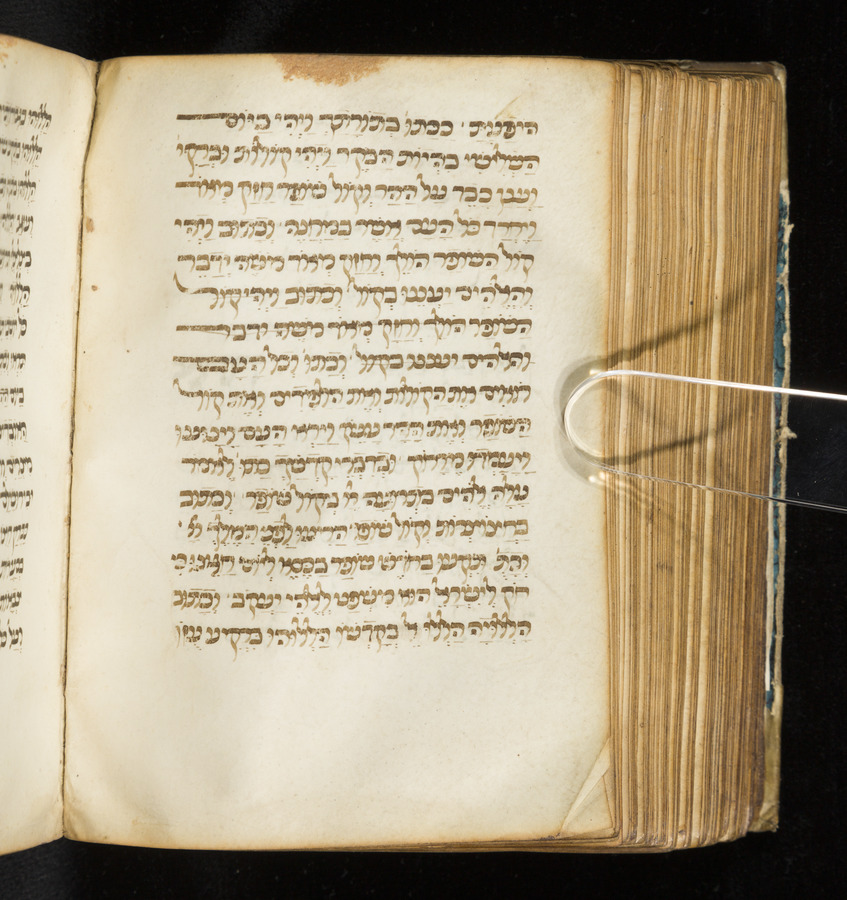 היפענית · ככתו בתוריתך ויהי ביום
השלישי בהיות הבקר ויהי קולות וברקי
וענן כבד על ההר וקול שופר חזק מאוד
ויחרד כל העם אשר במחנה · וכתוב ויהי
קול השופר הולך וחזק מאוד משה ידבר
והאלהים יעננו בקול וכתוב ויהי קול
השופר הולך וחזק מאוד משה ידבר
והאלהים יעננו בקול וכתו וכל העם
רואים את הקולות ואת הלפידים ואת קול
השופר ואת ההר עשן וירא העם וינועו
ויעמדו מרחוק ובדברי קדשך
עלה אלהים בתרועה יי בקול שופר וכתוב
בחצוצרות וקול שופר הריעו לפני המלך יי
תקעו בחדש שופר בכסה ליום חגנו כי
חק לישראל הוא משפט לאלהי יעקב · וכתוב
הללויה הללו אל בקדשו הללוהו ברקיע עוזו